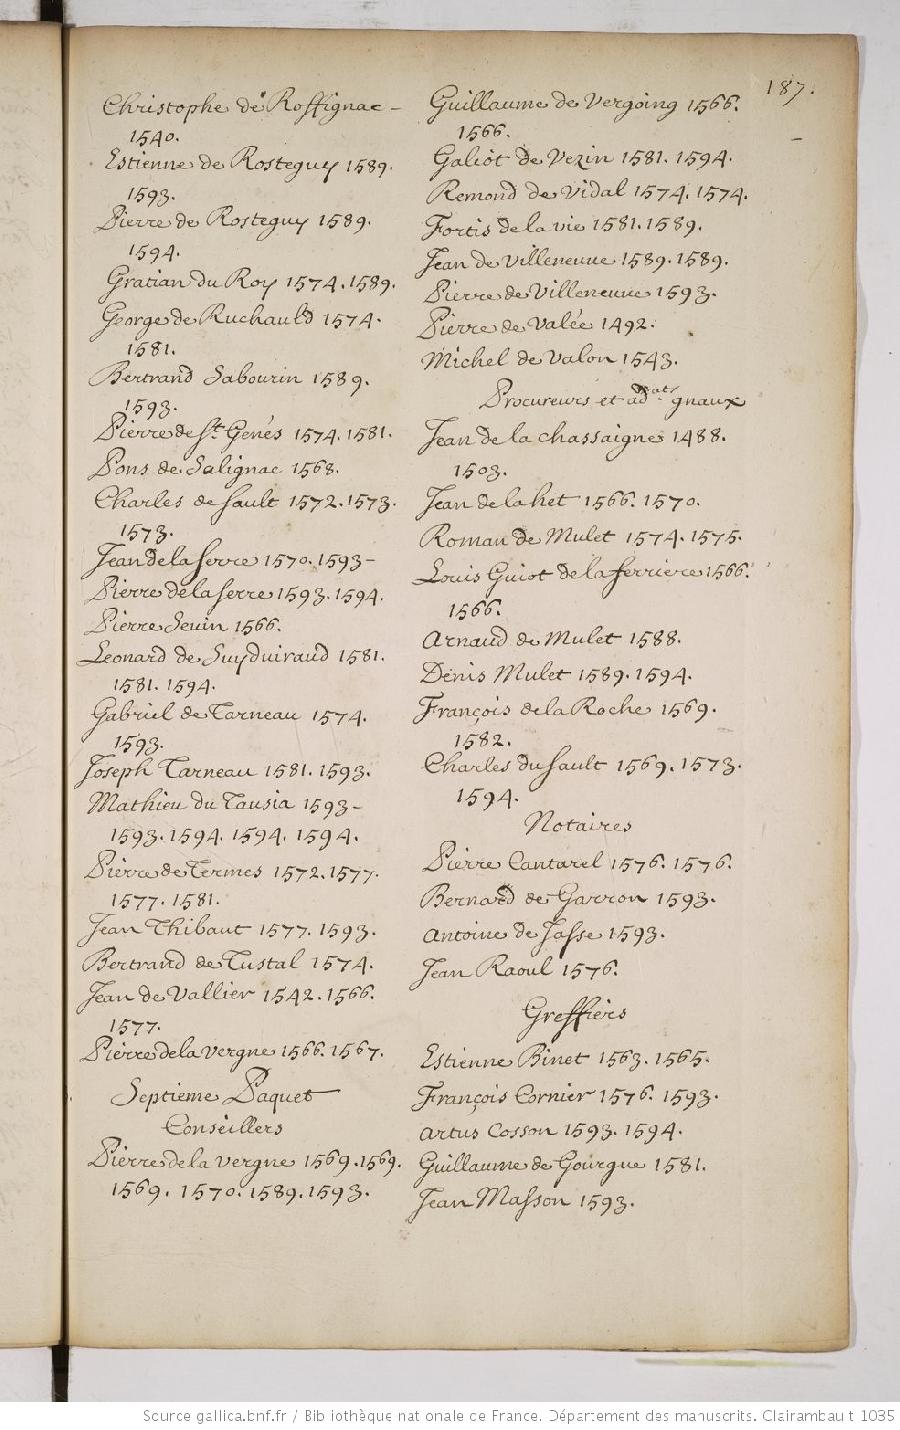 187.
Christophe de Roffignac -
1540.
Estienne de Rosteguy 1589.
1593.
Pierre de Rosteguy 1589.
1594.
Gratian du Roy 1574. 1589.
George de Ruchauld 1574.
1581.
Bertrand Sabourin 1589.
1593.
Pierre de St. Genés 1574. 1581.
Pons de Salignac 1568.
Charles de Sault 1572. 1573.
1573.
Jean de la Serre 1570. 1593 -
Pierre de la Serre 1593. 1594.
Pierre Seuin 1566.
Leonard de Suyduiraud 1581.
1581. 1594.
Gabriel de Tarneau 1574.
1593.
Joseph Tarneau 1581. 1593.
Mathieu du Tausia 1593 -
1593. 1594. 1594. 1594.
Pierre de Termes 1572. 1577.
1577. 1581.
Jean Thibaut 1577. 1593.
Bertrand de Tustal 1574.
Jean de Vallier 1542. 1566.
1577.
Pierre de la vergne 1566. 1567.
Septieme Paquet
Conseillers
Pierre de la vergne 1569. 1569.
1569. 1570. 1589. 1593.
Guillaume de Vergoing 1566.
1566.
Galiot de Vezin 1581. 1594.
Remond de Vidal 1574. 1574.
Fortis de la vie 1581. 1589.
Jean de Villeneuue 1589. 1589.
Pierre de Villeneuue 1593.
Pierre de Valée 1492.
Michel de Valon 1543.
Procureurs et advats. gnaux
Jean de la Chassaigne 1488.
1503.
Jean de la het 1566. 1570.
Roman de Mulet 1574. 1575.
Louis Guiot de la ferriere 1566.
1566.
Arnaud de Mulet 1588.
Denis Mulet 1589. 1594.
François de la Roche 1569.
1582.
Charles du Sault 1569. 1573.
1594.
Notaires
Pierre Cantarel 1576. 1576.
Bernard de Garron 1593.
Antoine de Jasse 1593.
Jean Raoul 1576.
Greffiers
Estienne Binet 1563. 1565.
François Cornier 1576. 1593.
Artus Cosson 1593. 1594.
Guillaume de Gourgue 1581.
Jean Masson 1593.
Source gallica.bnf.fr / Bibliothèque nationale de France. Département des manuscrits. Clairambault 1035